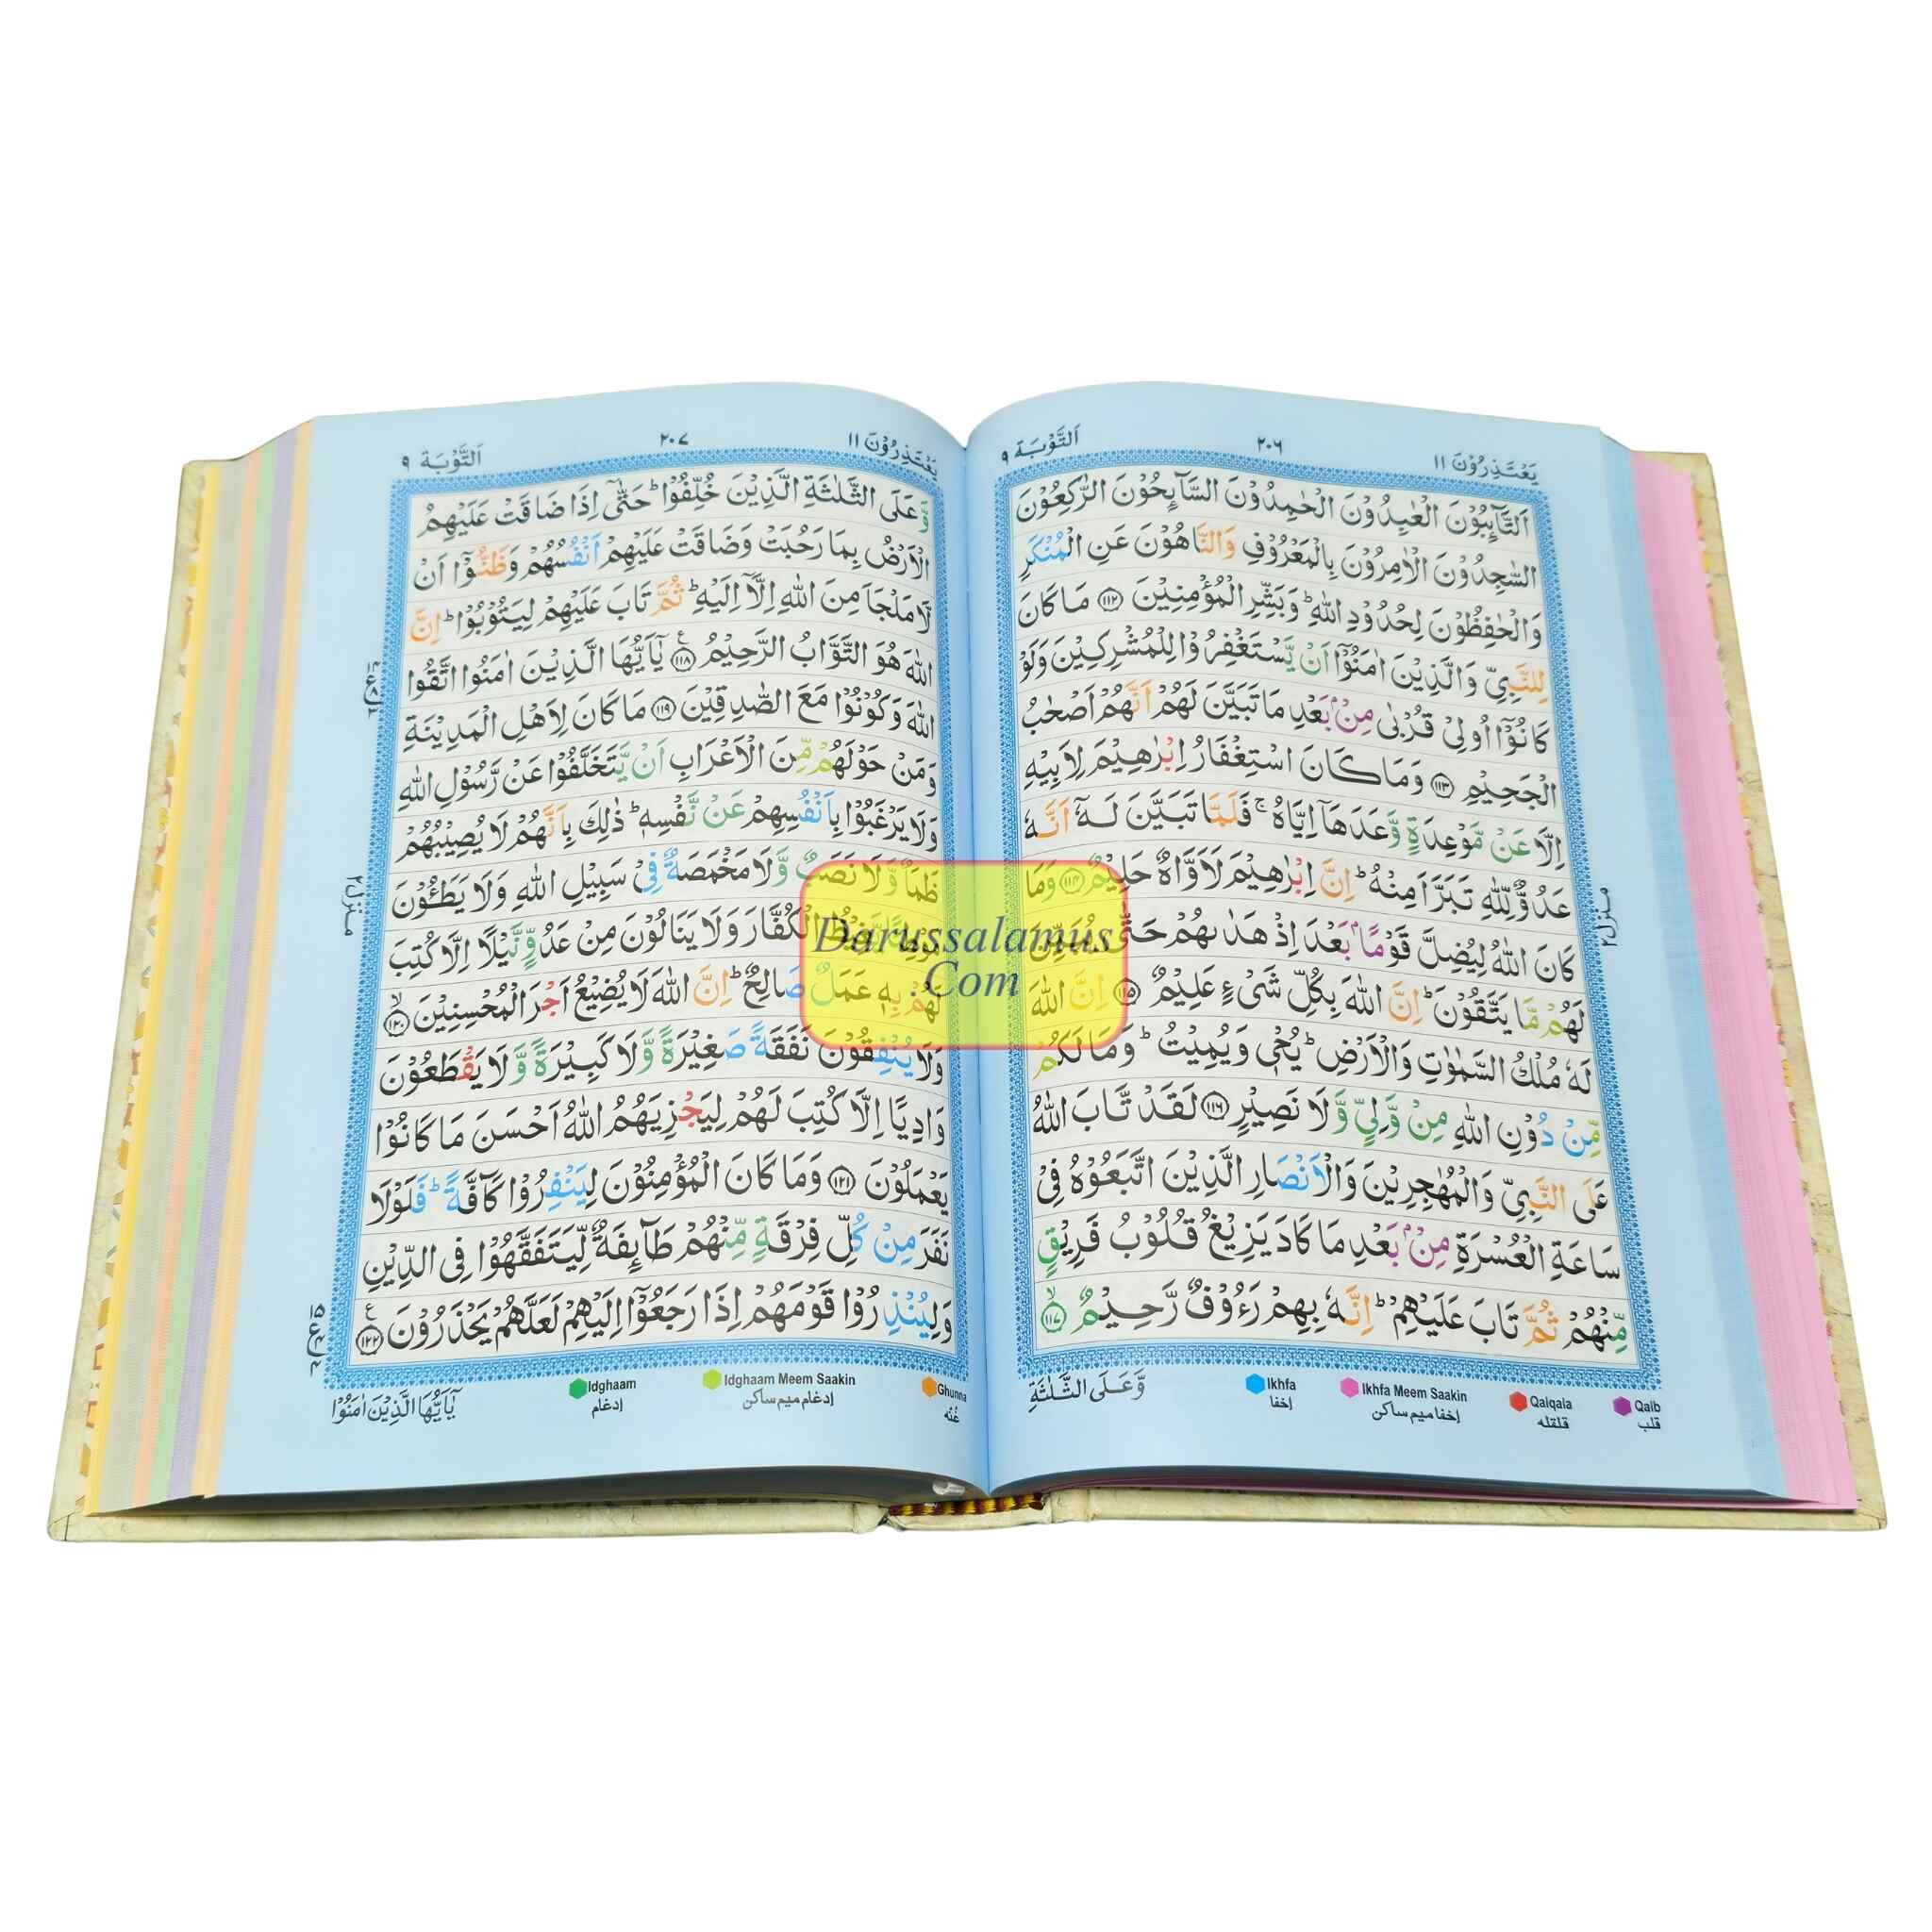 يَعْتَذِرُوْنَ ١١
٢٠٦
اَلتَّوْبَة ٩
اَلتَّآىِٕبُوْنَ الْعٰبِدُوْنَ الْحٰمِدُوْنَ السَّآىِٕحُوْنَ الرّٰكِعُوْنَ
السّٰجِدُوْنَ الْاٰمِرُوْنَ بِالْمَعْرُوْفِ وَالنَّاهُوْنَ عَنِ الْمُنْكَرِ
وَالْحٰفِظُوْنَ لِحُدُوْدِ اللّٰهِ ؕ وَبَشِّرِ الْمُؤْمِنِيْنَ ١١٢ مَا كَانَ
لِلنَّبِيِّ وَالَّذِيْنَ اٰمَنُوْۤا اَنْ يَّسْتَغْفِرُوْا لِلْمُشْرِكِيْنَ وَلَوْ
كَانُوْۤا اُولِيْ قُرْبٰى مِنْۢ بَعْدِ مَا تَبَيَّنَ لَهُمْ اَنَّهُمْ اَصْحٰبُ
الْجَحِيْمِ ١١٣ وَمَا كَانَ اسْتِغْفَارُ اِبْرٰهِيْمَ لِاَبِيْهِ
اِلَّا عَنْ مَّوْعِدَةٍ وَّعَدَهَاۤ اِيَّاهُ ۚ فَلَمَّا تَبَيَّنَ لَهٗۤ اَنَّهٗ
عَدُوٌّ لِّلّٰهِ تَبَرَّاَ مِنْهُ ؕ اِنَّ اِبْرٰهِيْمَ لَاَوَّاهٌ حَلِيْمٌ ١١٤ وَمَا
كَانَ اللّٰهُ لِيُضِلَّ قَوْمًۢا بَعْدَ اِذْ هَدٰىهُمْ حَتّٰى يُبَيِّنَ
لَهُمْ مَّا يَتَّقُوْنَ ؕ اِنَّ اللّٰهَ بِكُلِّ شَيْءٍ عَلِيْمٌ ١١٥ اِنَّ اللّٰهَ
لَهٗ مُلْكُ السَّمٰوٰتِ وَالْاَرْضِ ؕ يُحْيٖ وَيُمِيْتُ ؕ وَمَا لَكُمْ
مِّنْ دُوْنِ اللّٰهِ مِنْ وَّلِيٍّ وَّلَا نَصِيْرٍ ١١٦ لَقَدْ تَّابَ اللّٰهُ
عَلَى النَّبِيِّ وَالْمُهٰجِرِيْنَ وَالْاَنْصَارِ الَّذِيْنَ اتَّبَعُوْهُ فِيْ
سَاعَةِ الْعُسْرَةِ مِنْۢ بَعْدِ مَا كَادَ يَزِيْغُ قُلُوْبُ فَرِيْقٍ
مِّنْهُمْ ثُمَّ تَابَ عَلَيْهِمْ ؕ اِنَّهٗ بِهِمْ رَءُوْفٌ رَّحِيْمٌ ۙ ١١٧
منزل ٢
وَّعَلَى الثَّلٰثَةِ
Ikhfa
إخفا
Ikhfa Meem Saakin
إخفا میم ساکن
Qalqala
قلقله
Qalb
قلب
يَعْتَذِرُوْنَ ١١
٢٠٧
اَلتَّوْبَة ٩
وَّعَلَى الثَّلٰثَةِ الَّذِيْنَ خُلِّفُوْا ؕ حَتّٰۤى اِذَا ضَاقَتْ عَلَيْهِمُ
الْاَرْضُ بِمَا رَحُبَتْ وَضَاقَتْ عَلَيْهِمْ اَنْفُسُهُمْ وَظَنُّوْۤا اَنْ
لَّا مَلْجَاَ مِنَ اللّٰهِ اِلَّاۤ اِلَيْهِ ؕ ثُمَّ تَابَ عَلَيْهِمْ لِيَتُوْبُوْا ؕ اِنَّ
اللّٰهَ هُوَ التَّوَّابُ الرَّحِيْمُ ١١٨ يٰۤاَيُّهَا الَّذِيْنَ اٰمَنُوا اتَّقُوا
اللّٰهَ وَكُوْنُوْا مَعَ الصّٰدِقِيْنَ ١١٩ مَا كَانَ لِاَهْلِ الْمَدِيْنَةِ
وَمَنْ حَوْلَهُمْ مِّنَ الْاَعْرَابِ اَنْ يَّتَخَلَّفُوْا عَنْ رَّسُوْلِ اللّٰهِ
وَلَا يَرْغَبُوْا بِاَنْفُسِهِمْ عَنْ نَّفْسِهٖ ؕ ذٰلِكَ بِاَنَّهُمْ لَا يُصِيْبُهُمْ
ظَمَاٌ وَّلَا نَصَبٌ وَّلَا مَخْمَصَةٌ فِيْ سَبِيْلِ اللّٰهِ وَلَا يَطَـُٔوْنَ
مَوْطِئًا يَّغِيْظُ الْكُفَّارَ وَلَا يَنَالُوْنَ مِنْ عَدُوٍّ نَّيْلًا اِلَّا كُتِبَ
لَهُمْ بِهٖ عَمَلٌ صَالِحٌ ؕ اِنَّ اللّٰهَ لَا يُضِيْعُ اَجْرَ الْمُحْسِنِيْنَ ۙ ١٢٠
وَلَا يُنْفِقُوْنَ نَفَقَةً صَغِيْرَةً وَّلَا كَبِيْرَةً وَّلَا يَقْطَعُوْنَ
وَادِيًا اِلَّا كُتِبَ لَهُمْ لِيَجْزِيَهُمُ اللّٰهُ اَحْسَنَ مَا كَانُوْا
يَعْمَلُوْنَ ١٢١ وَمَا كَانَ الْمُؤْمِنُوْنَ لِيَنْفِرُوْا كَآفَّةً ؕ فَلَوْلَا
نَفَرَ مِنْ كُلِّ فِرْقَةٍ مِّنْهُمْ طَآىِٕفَةٌ لِّيَتَفَقَّهُوْا فِى الدِّيْنِ
وَلِيُنْذِرُوْا قَوْمَهُمْ اِذَا رَجَعُوْۤا اِلَيْهِمْ لَعَلَّهُمْ يَحْذَرُوْنَ ١٢٢
منزل ٢
يٰۤاَيُّهَا الَّذِيْنَ اٰمَنُوْا
Idghaam
إدغام
Idghaam Meem Saakin
إدغام میم ساکن
Ghunna
غُنّه
Darussalamus
Com